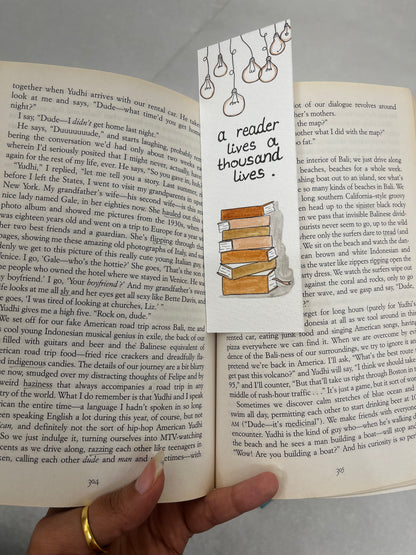 together when Yudhi arrives with our rental car. He take
look at me and says, "Dude—what time'd you get home
night?"
I say, "Dude—I didn't get home last night."
He says, "Duuuuuuude," and starts laughing,
bering the conversation we'd had only about two
wherein I'd seriously posited that I might never, actually, have
again for the rest of my life, ever. He says, "So you gave in,
"Yudhi," I replied, "let me tell you a story. Last
before I left the States, I went to visit my grandparents in
New York. My grandfather's wife—his second wife—is this
nice lady named Gale, in her eighties now. She hauled out this
photo album and showed me pictures from the 1930s, when
was eighteen years old and went on a trip to Europe for a
her two best friends and a guardian. She's flipping through
pages, showing me these amazing old photographs of Italy, and
denly we get to this picture of this really cute young Italian
Venice. I go, 'Gale—who's the hottie?' She goes, 'That's the son
the people who owned the hotel where we stayed in Venice. He was
boyfriend.' I go, 'Your boyfriend?' And my grandfather's sweet wife
looks at me all sly and her eyes get all sexy like Bette Davis, and
goes, 'I was tired of looking at churches, Liz.'"
Yudhi gives me a high five. "Rock on, dude."
We set off for our fake American road trip across Bali, me and
cool young Indonesian musical genius in exile, the back of our
filled with guitars and beer and the Balinese equivalent of
American road trip food—fried rice crackers and dreadfully
indigenous candies. The details of our journey are a bit blurry
me now, smudged over my distracting thoughts of Felipe and by
weird haziness that always accompanies a road trip in any
try of the world. What I do remember is that Yudhi and I speak
American the entire time—a language I hadn't spoken in so long.
been speaking English a lot during this year, of course, but not
ican, and definitely not the sort of hip-hop American Yudhi
So we just indulge it, turning ourselves into MTV-watching
cents as we drive along, razzing each other like teenagers in
ken, calling each other dude and man and sometimes—with
304
a reader
lives a
thousand
lives .
lot of our dialogue revolves around
other's mothers.
the map?"
other what I did with the map?"
the interior of Bali; we just drive along
beaches, beaches for a whole week.
fishing boat out to an island, see what's
so many kinds of beaches in Bali. We
long southern California-style groovy
head up to the sinister black rocky
that invisible Balinese divid-
tourists never seem to go, up to the wild
where only the surfers dare to tread (and
We sit on the beach and watch the dan-
We watch the surfers wipe
against the coral and rocks, only to go
other wave, and we gasp and say, "Dude,
forget for long hours (purely for Yudhi
in Indonesia at all as we tool around in this
rented car, eating junk food and singing American songs, having
pizza everywhere we can find it. When we are overcome by evi-
dence of the Bali-ness of our surroundings, we try to ignore it and
pretend we're back in America. I'll ask, "What's the best route to
get past this volcano?" and Yudhi will say, "I think we should take
I-95," and I'll counter, "But that'll take us right through Boston in
middle of rush-hour traffic . . ." It's just a game, but it sort of works.
Sometimes we discover calm stretches of blue ocean and we
swim all day, permitting each other to start drinking beer at 10
AM ("Dude—it's medicinal"). We make friends with everyone we
encounter. Yudhi is the kind of guy who—when he's walking down
the beach and he sees a man building a boat—will stop and say,
"Wow! Are you building a boat?" And his curiosity is so perfectly
305